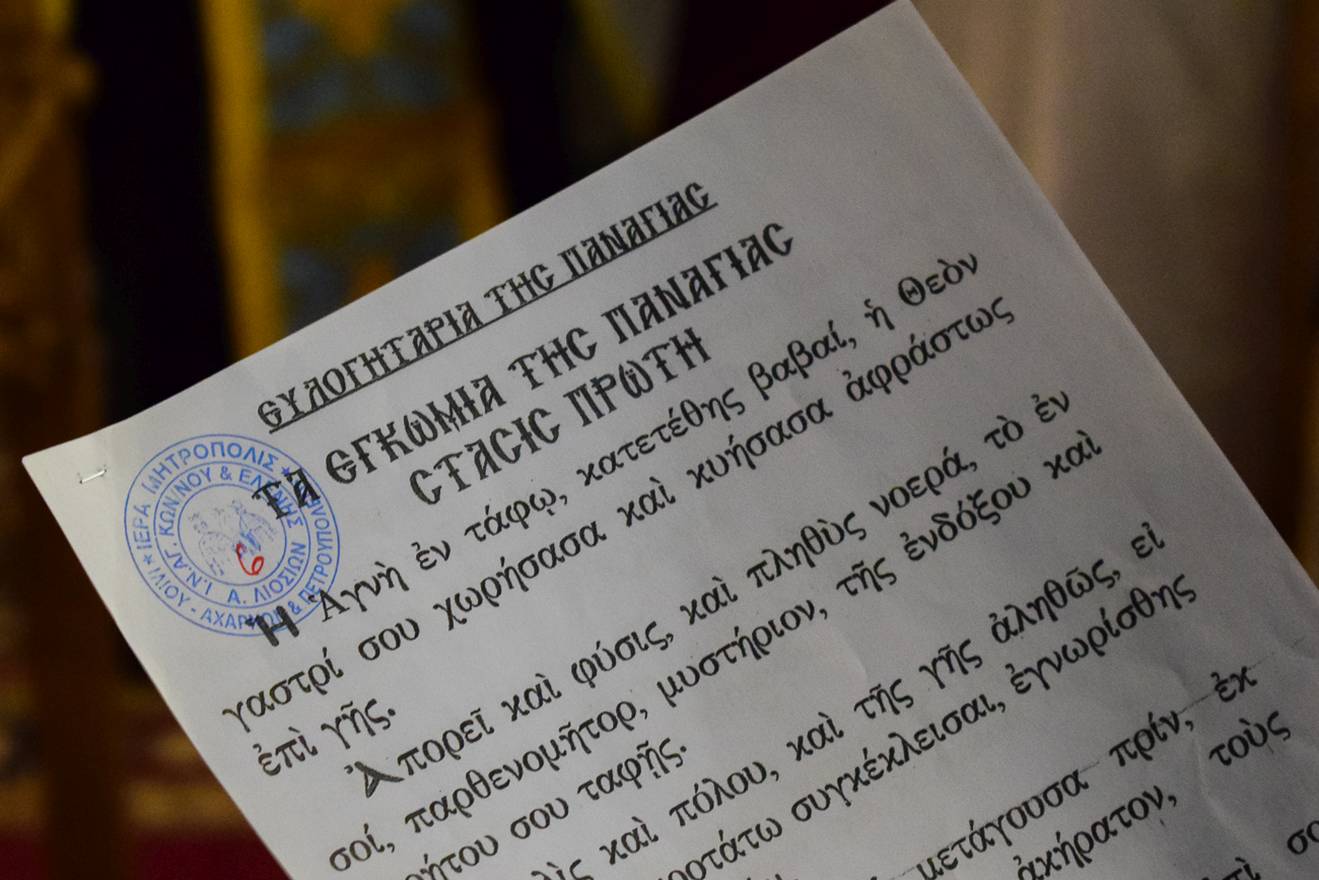 ΕΥΛΟΓΗΤΑΡΙΑ ΤΗΣ ΠΑΝΑΓΙΑΣ
ΤΑ ΕΓΚΩΜΙΑ ΤΗΣ ΠΑΝΑΓΙΑΣ
ΣΤΑΣΙΣ ΠΡΩΤΗ
ΙΕΡΑ ΜΗΤΡΟΠΟΛΙΣ
ΙΛΙΟΥ - ΑΧΑΡΝΩΝ & ΠΕΤΡΟΥΠΟΛΕΩΣ
Ι.Ν.ΑΓ. ΚΩΝ/ΝΟΥ & ΕΛΕΝΗΣ
Α. ΛΙΟΣΙΩΝ
6
Ἡ Ἁγνὴ ἐν τάφῳ, κατετέθης βαβαί, ἡ Θεὸν
γαστρί σου χωρήσασα καὶ κυήσασα ἀφράστως
ἐπὶ γῆς.
Ἀπορεῖ καὶ φύσις, καὶ πληθὺς νοερά, τὸ ἐν
σοί, παρθενομῆτορ, μυστήριον, τῆς ἐνδόξου καὶ
σου ταφῇς.
καὶ πόλου, καὶ τῆς γῆς ἀληθῶς, εἰ
συγκέκλεισαι, ἐγνωρίσθης
μετάγουσα πρίν, ἐκ
ἀκήρατον, τοὺς